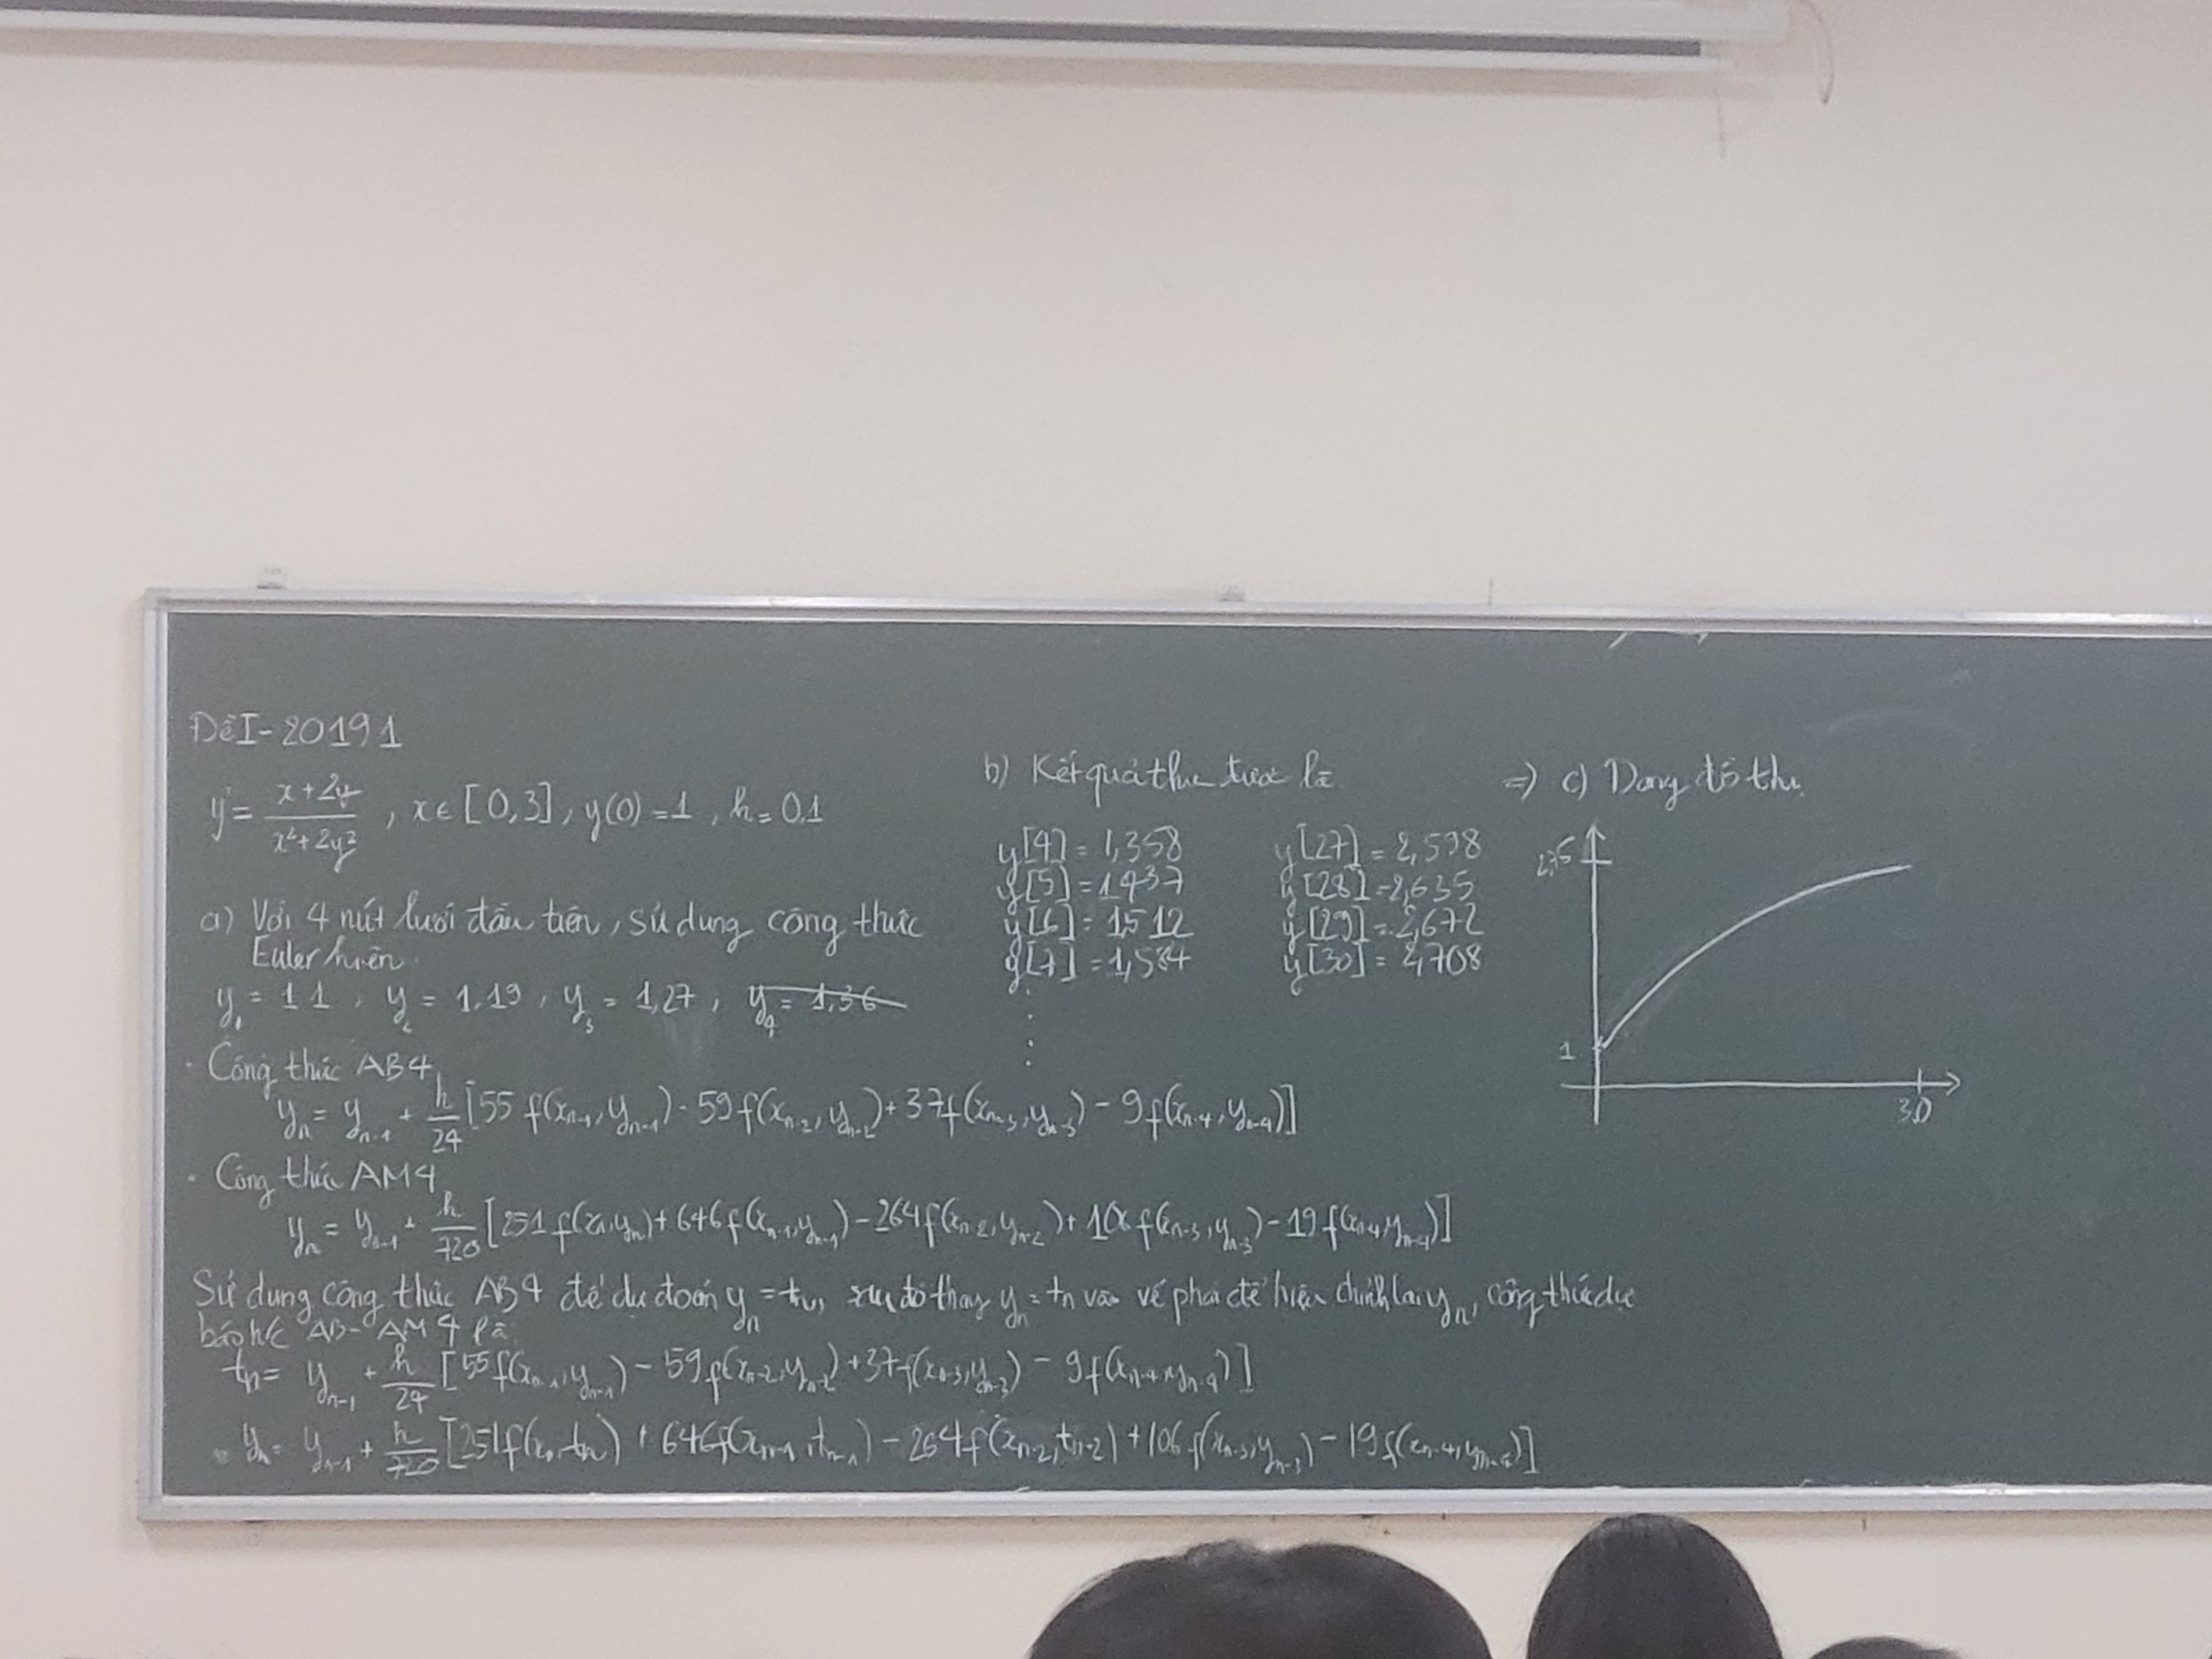 Đề I - 20191
y' = (x + 2y)/(x² + 2y²), x ∈ [0,3], y(0) = 1, h = 0.1
a) Với 4 nút lưới đầu tiên, sử dụng công thức
Euler hiện.
y₁ = 1.1, y₂ = 1.19, y₃ = 1,27, y₄ = 1,36
· Công thức AB4
yₙ = yₙ₋₁ + h/24 [55 f(xₙ₋₁, yₙ₋₁) - 59 f(xₙ₋₂, yₙ₋₂) + 37 f(xₙ₋₃, yₙ₋₃) - 9 f(xₙ₋₄, yₙ₋₄)]
· Công thức AM4
yₙ = yₙ₋₁ + h/720 [251 f(xₙ, yₙ) + 646 f(xₙ₋₁, yₙ₋₁) - 264 f(xₙ₋₂, yₙ₋₂) + 106 f(xₙ₋₃, yₙ₋₃) - 19 f(xₙ₋₄, yₙ₋₄)]
Sử dụng công thức AB4 để dự đoán yₙ = tₙ, sau đó thay yₙ = tₙ vào vế phải để hiệu chỉnh lại yₙ, công thức dự
báo h/c AB - AM 4 là
tₙ = yₙ₋₁ + h/24 [55 f(xₙ₋₁, yₙ₋₁) - 59 f(xₙ₋₂, yₙ₋₂) + 37 f(xₙ₋₃, yₙ₋₃) - 9 f(xₙ₋₄, yₙ₋₄)]
yₙ = yₙ₋₁ + h/720 [251 f(xₙ, tₙ) + 646 f(xₙ₋₁, tₙ₋₁) - 264 f(xₙ₋₂, tₙ₋₂) + 106 f(xₙ₋₃, yₙ₋₃) - 19 f(xₙ₋₄, yₙ₋₄)]
b) Kết quả thu được là
y[4] = 1,358
y[5] = 1437
y[6] = 1,512
y[7] = 1,584
y[27] = 2,598
y[28] = 2,635
y[29] = 2,672
y[30] = 2,708
⇒ c) Dạng đồ thị
1